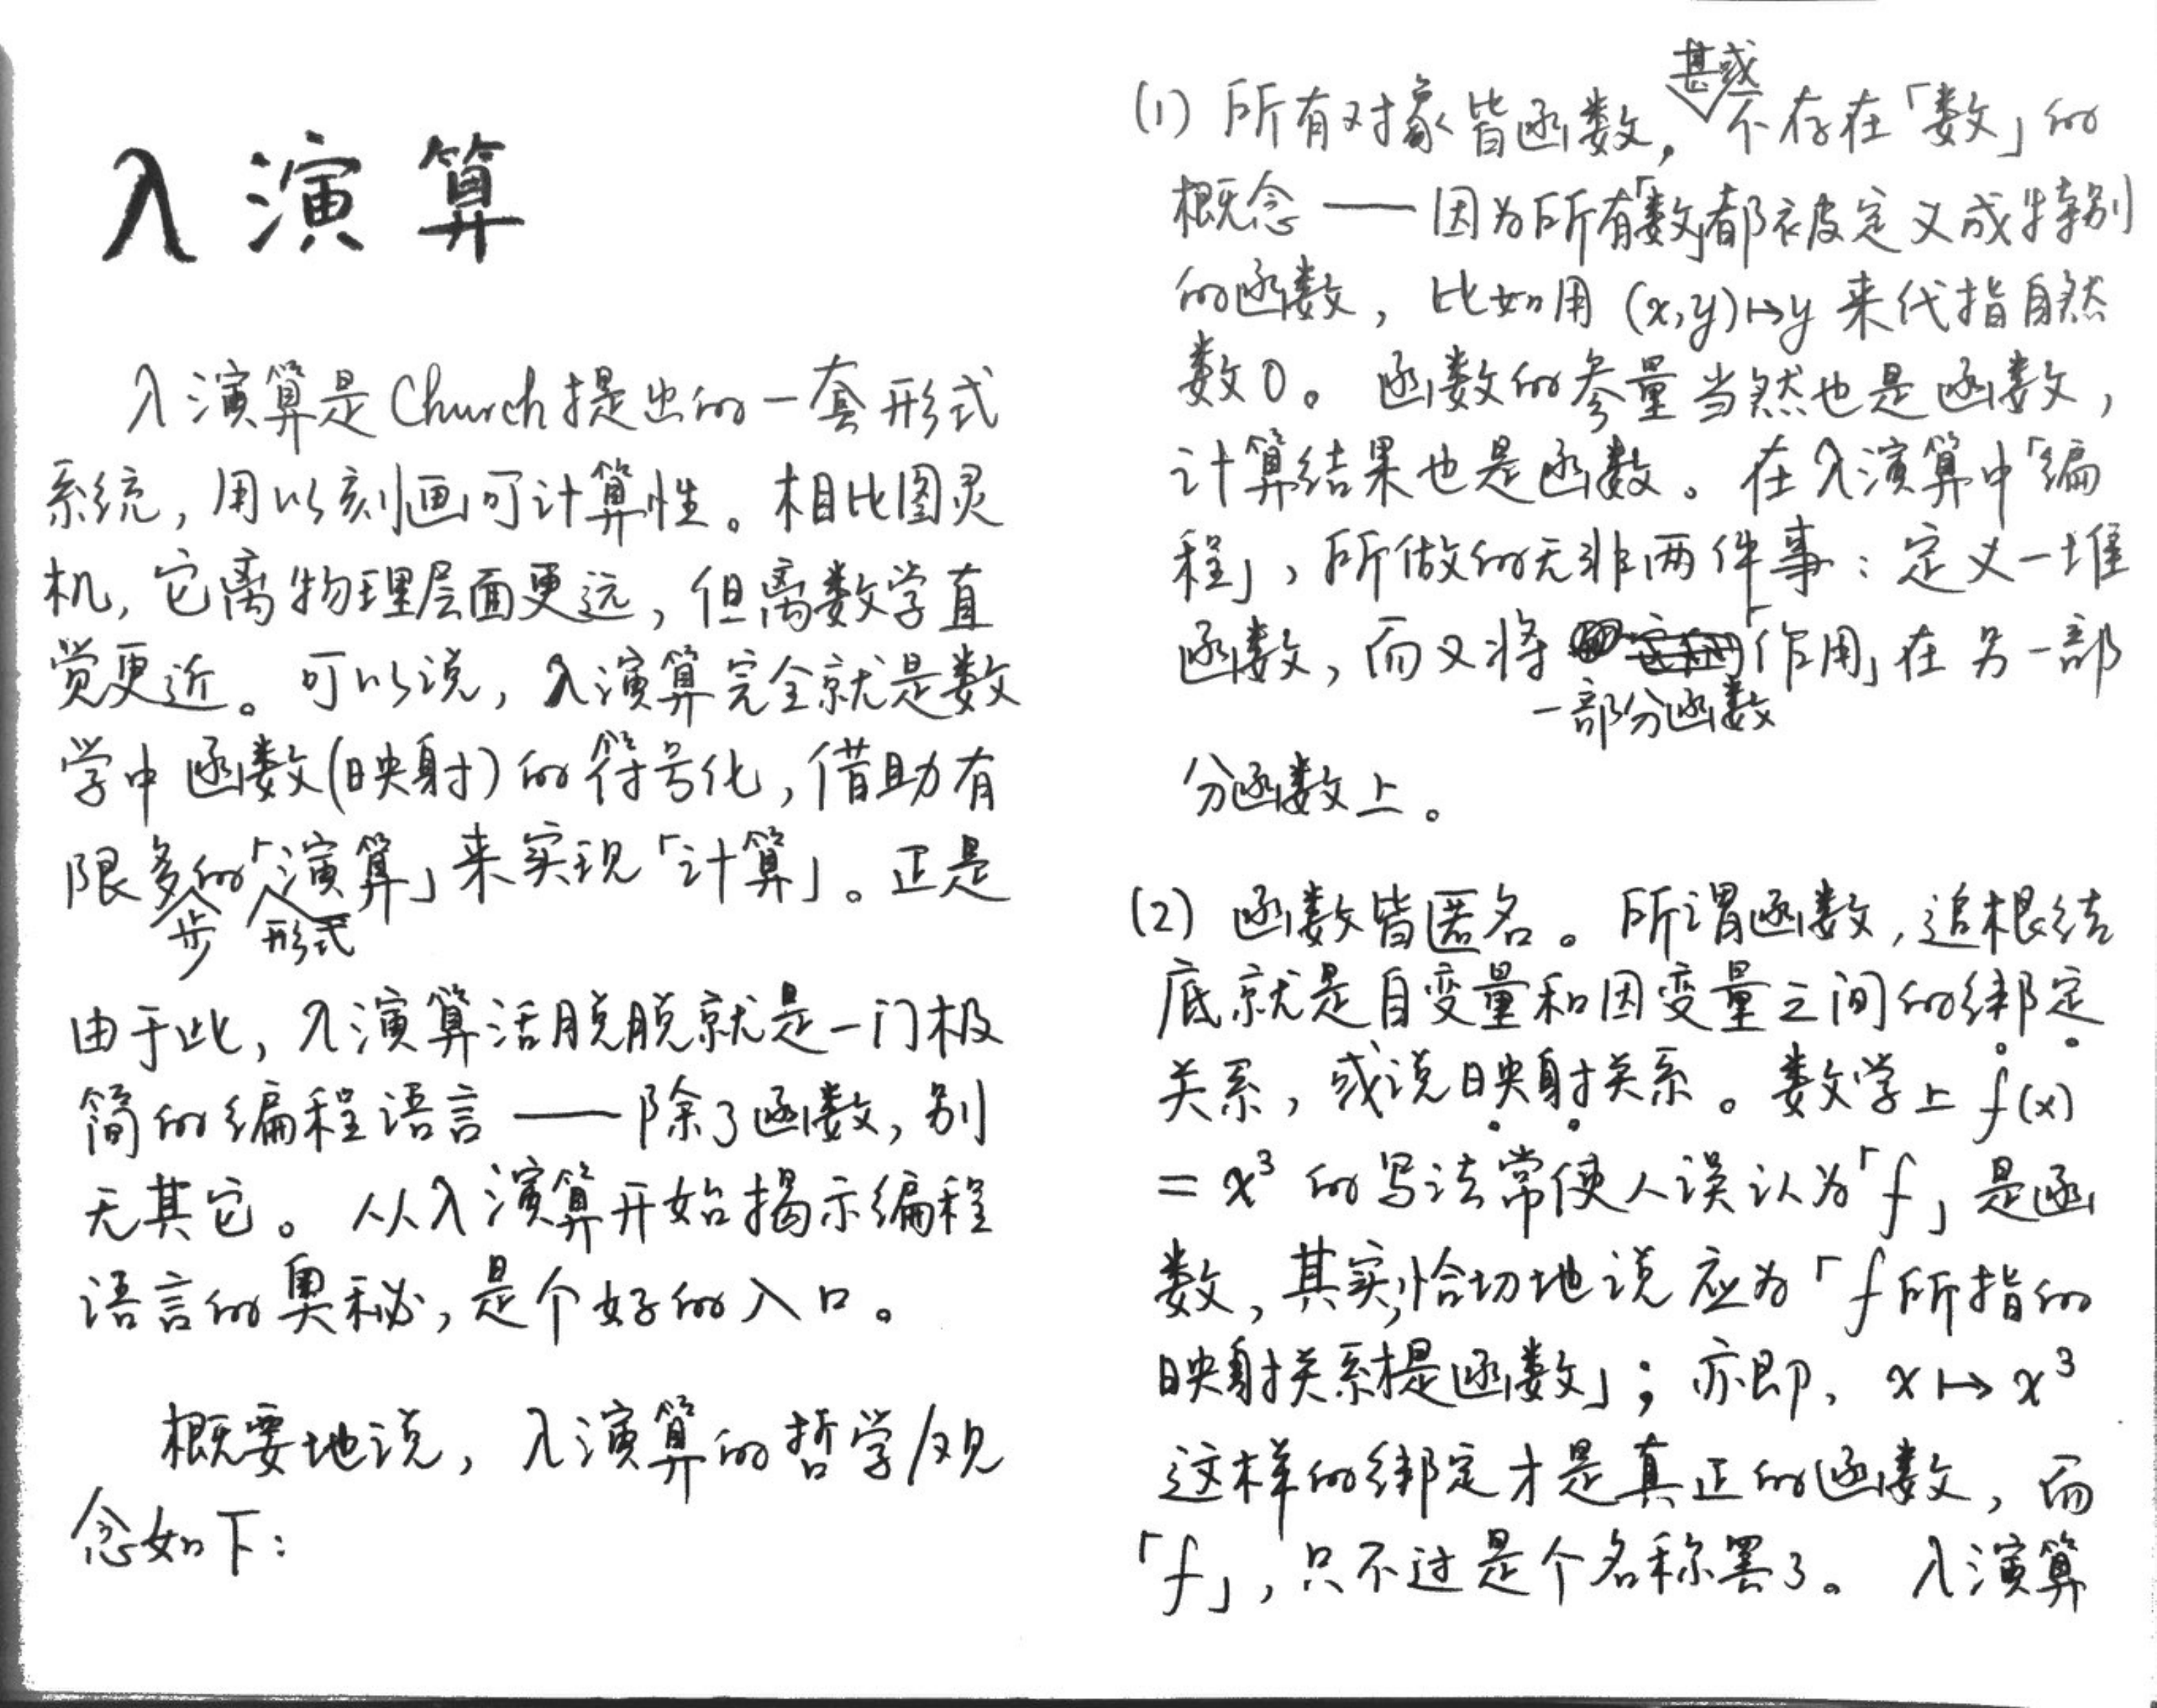 λ演算
λ演算是Church提出的一套形式
系统，用以刻画可计算性。相比图灵
机，它离物理层面更远，但离数学直
觉更近。可以说，λ演算完全就是数
学中函数(映射)的符号化，借助有
限多的「演算」来实现「计算」。正是
步 形式
由于此，λ演算活脱脱就是一门极
简的编程语言——除了函数，别
无其它。从λ演算开始揭示编程
语言的奥秘，是个好的入口。
概要地说，λ演算的哲学/观
念如下：
甚或
(1) 所有对象皆函数，不存在「数」的
概念——因为所有「数」都被定义成特别
的函数，比如用 (x,y)↦y 来代指自然
数0。函数的参量当然也是函数，
计算结果也是函数。在λ演算中「编
程」，所做的无非两件事：定义一堆
函数，而又将「作用」在另一部
一部分函数
分函数上。
(2) 函数皆匿名。所谓函数，追根结
底就是自变量和因变量之间的绑定
关系，或说映射关系。数学上 f(x)
= x³ 的写法常使人误认为「f」是函
数，其实，恰切地说应为「f所指的
映射关系是函数」；亦即，x↦x³
这样的绑定才是真正的函数，而
「f」，只不过是个名称罢了。λ演算